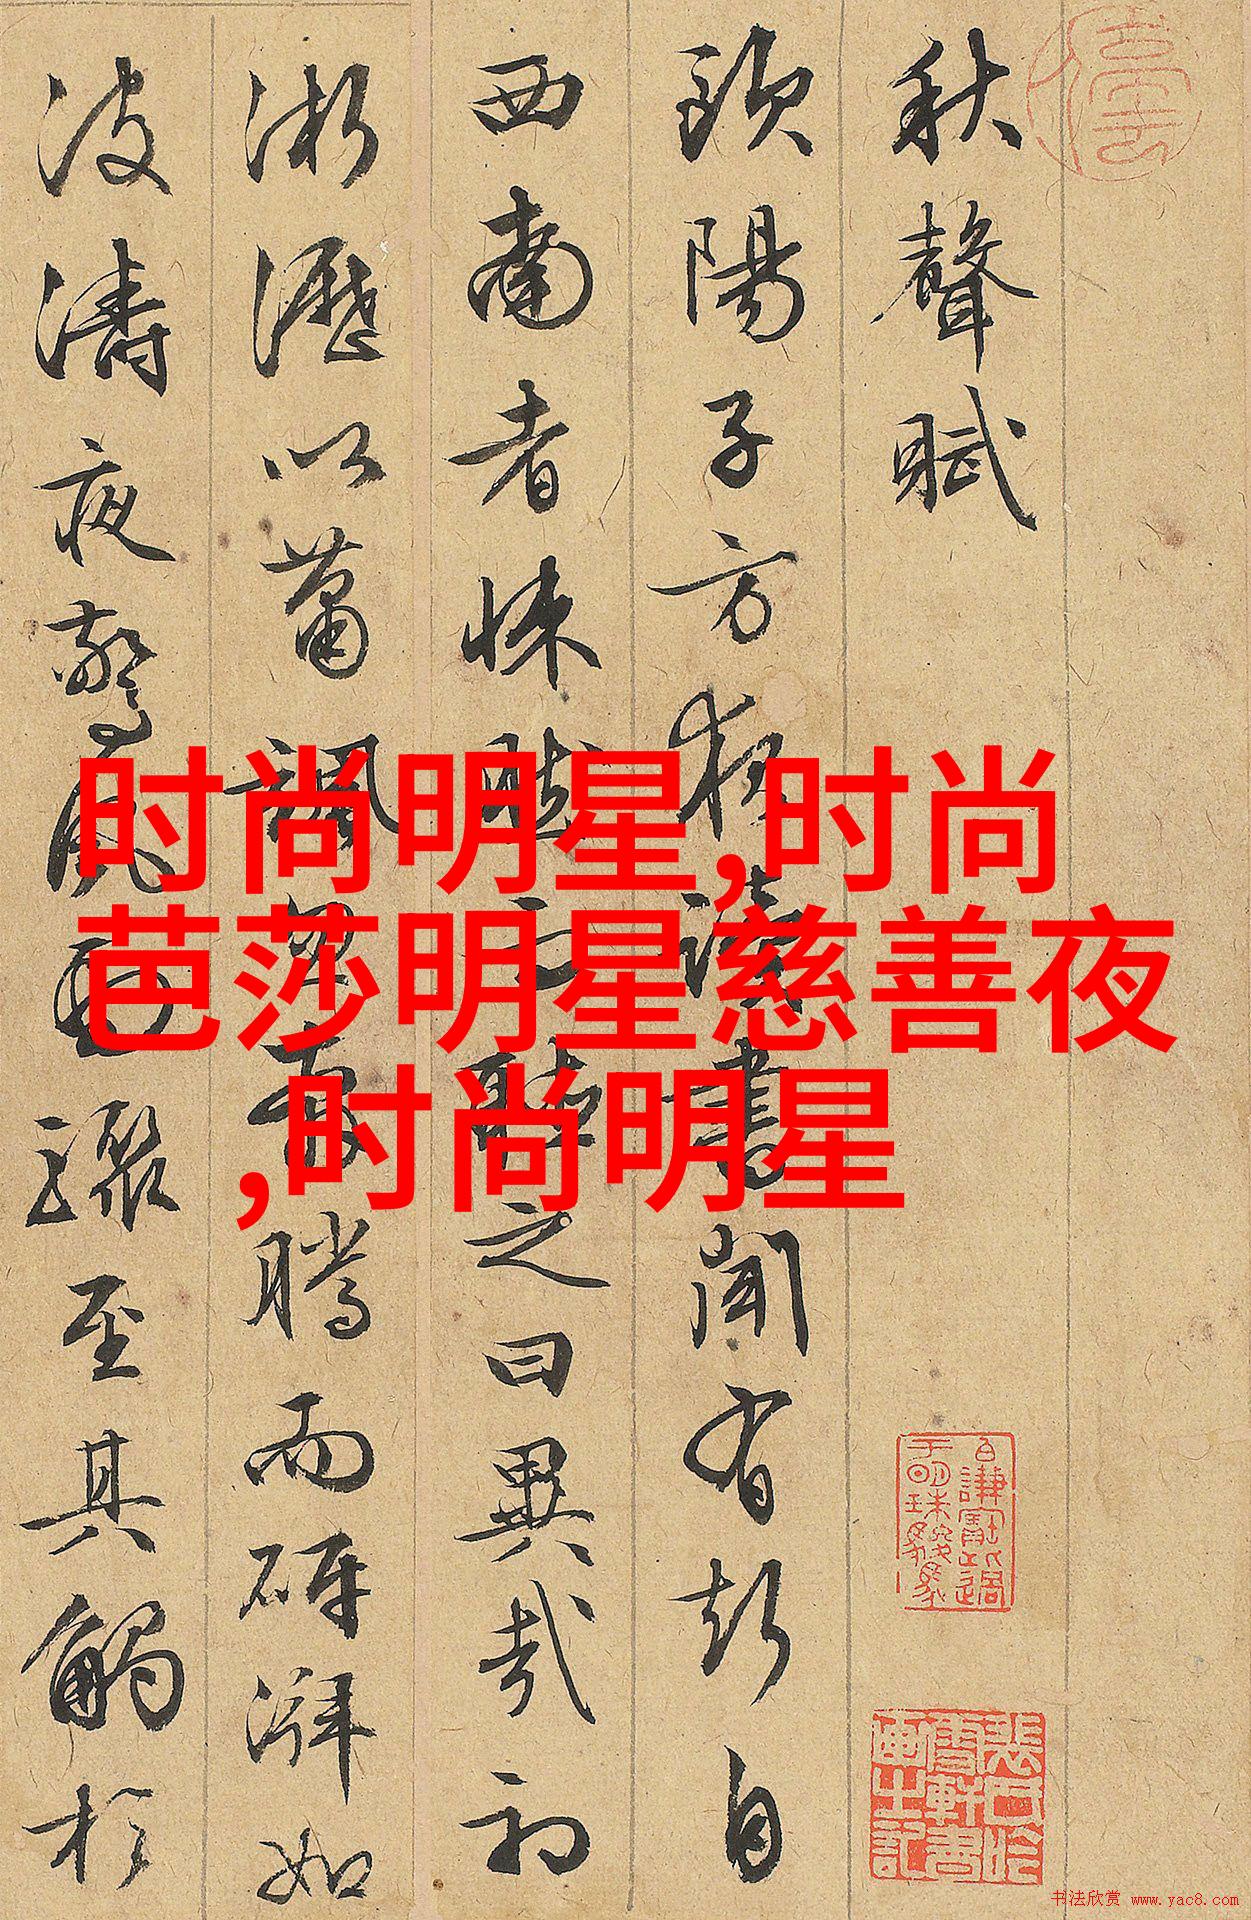 秋聲賦
歐陽子方夜讀書聞有聲自
西南者悚然而聽之曰異哉初
淅瀝以蕭颯忽奔騰而砰湃如
波濤夜驚風雨驟至其觸於
时尚明星,时尚
芭莎明星慈善夜
,时尚明星
书法欣赏 www.yac8.com